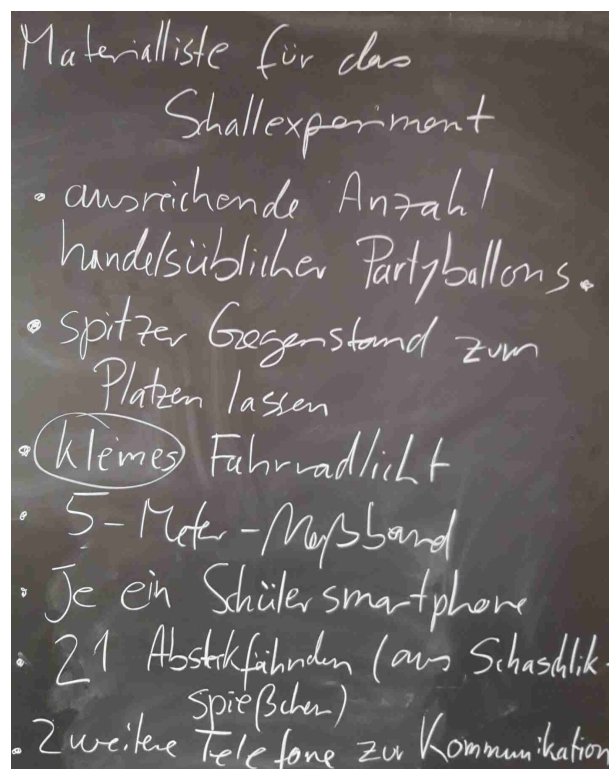 Materialliste für das
Schallexperiment
• ausreichende Anzahl
handelsüblicher Partyballons.
• spitzer Gegenstand zum
Platzen lassen
• kleines Fahrradlicht
• 5-Meter-Maßband
• Je ein Schülersmartphone
• 21 Absteckfähnchen (aus Schaschlik-
spießchen)
• 2 weitere Telefone zur Kommunikation